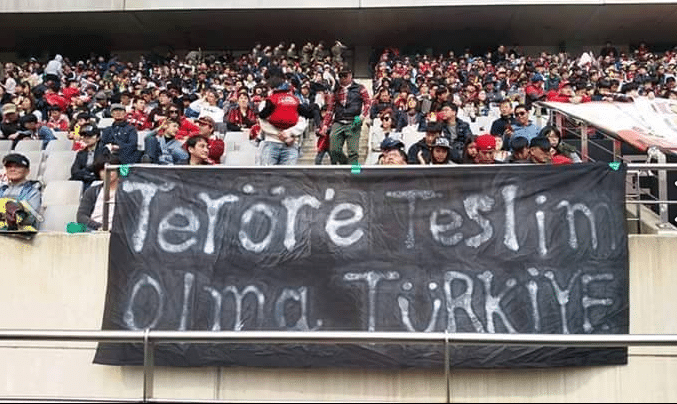 Terör'e Teslim
Olma TÜRKİYE